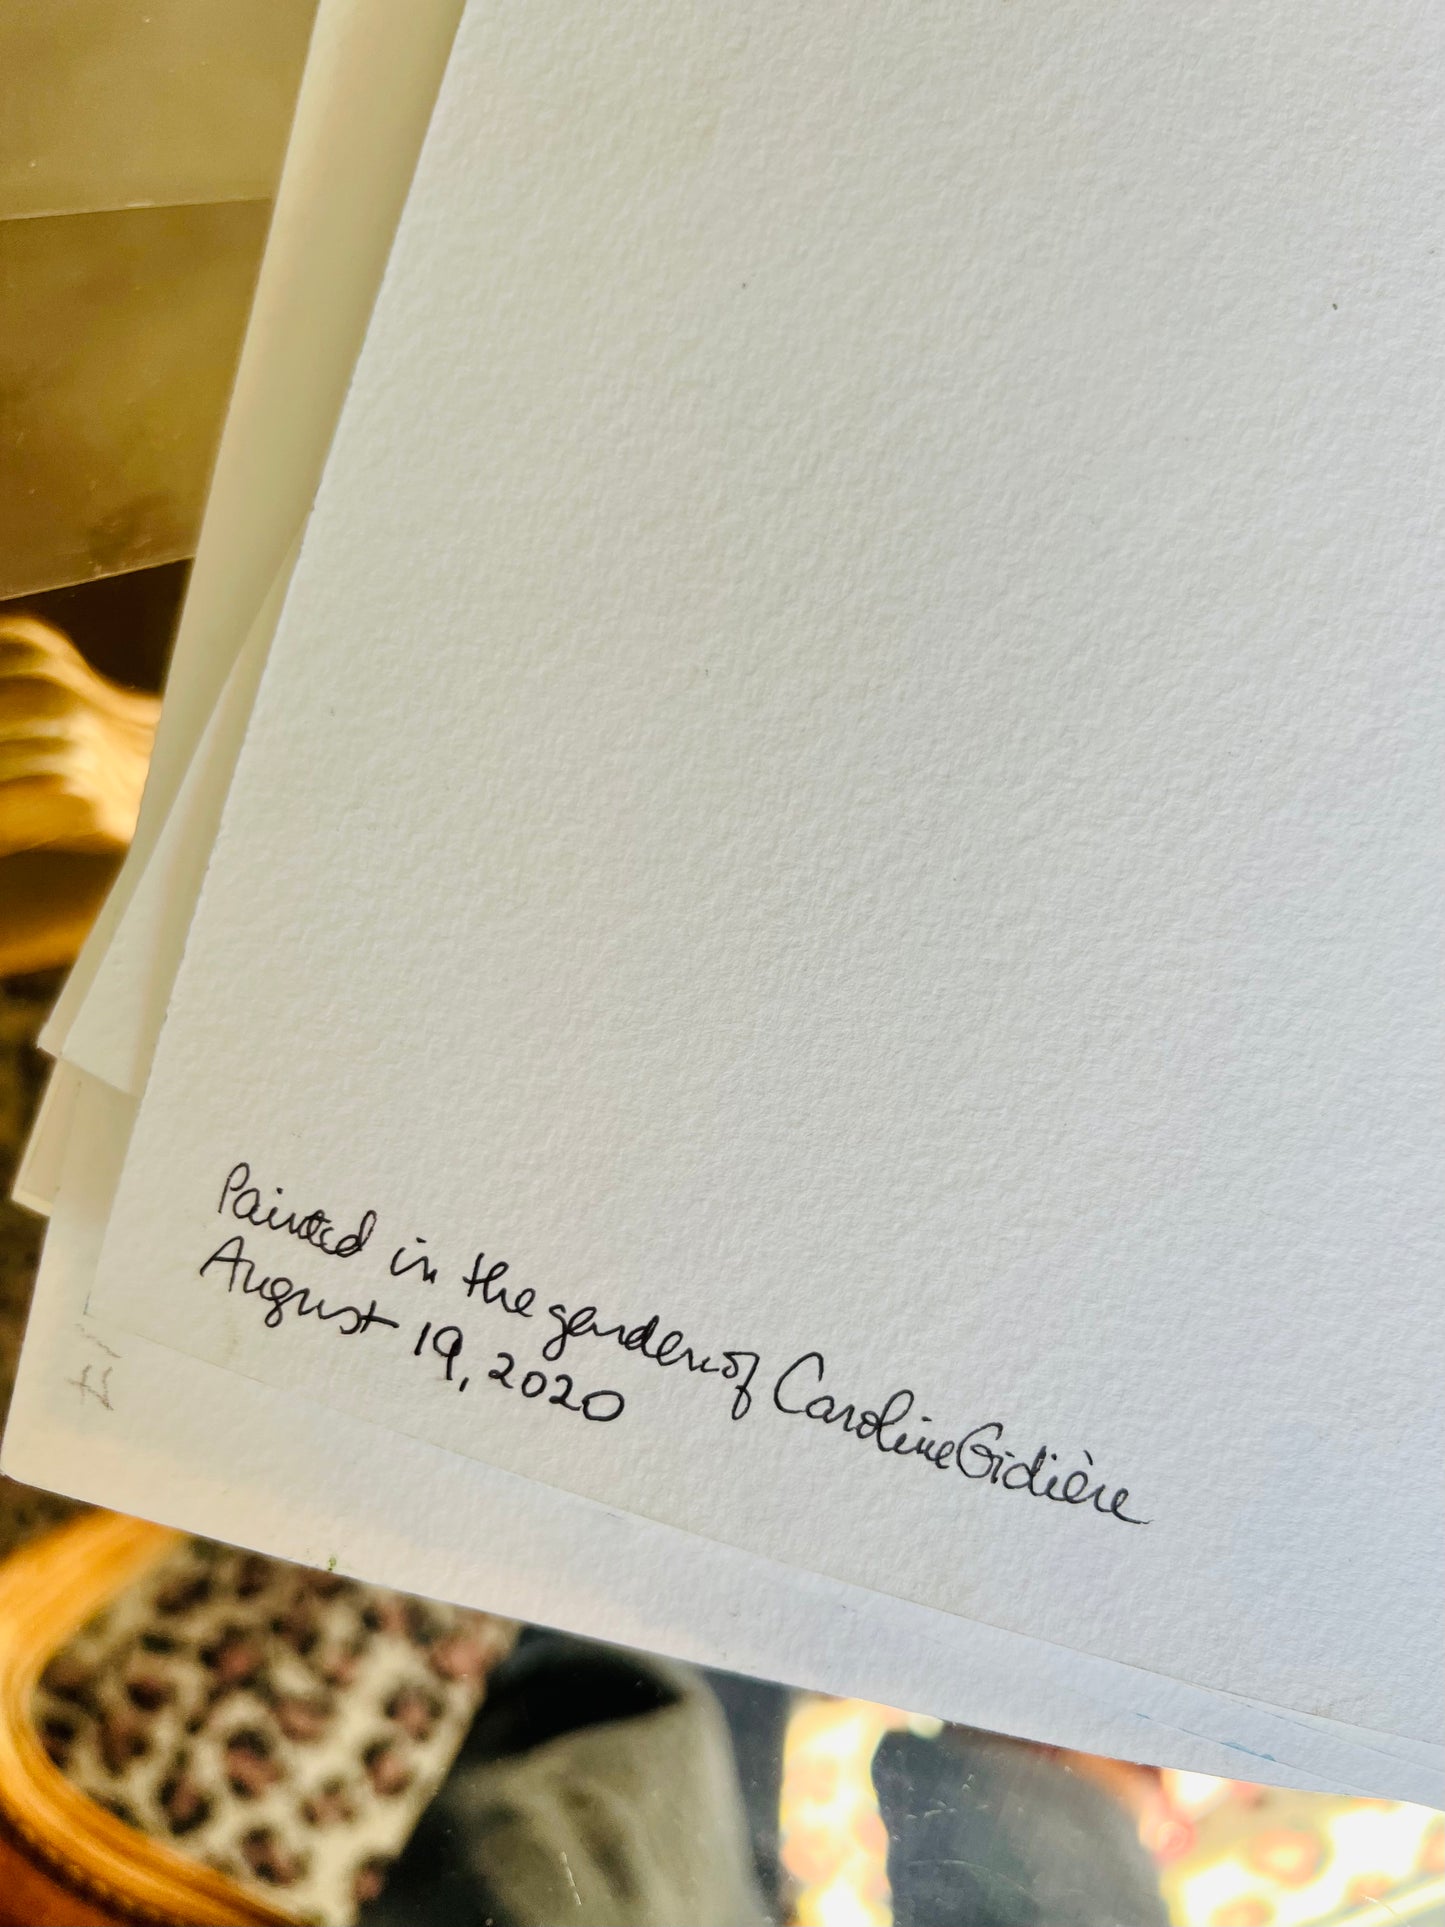 Painted in the garden of Caroline Gidière
August 19, 2020